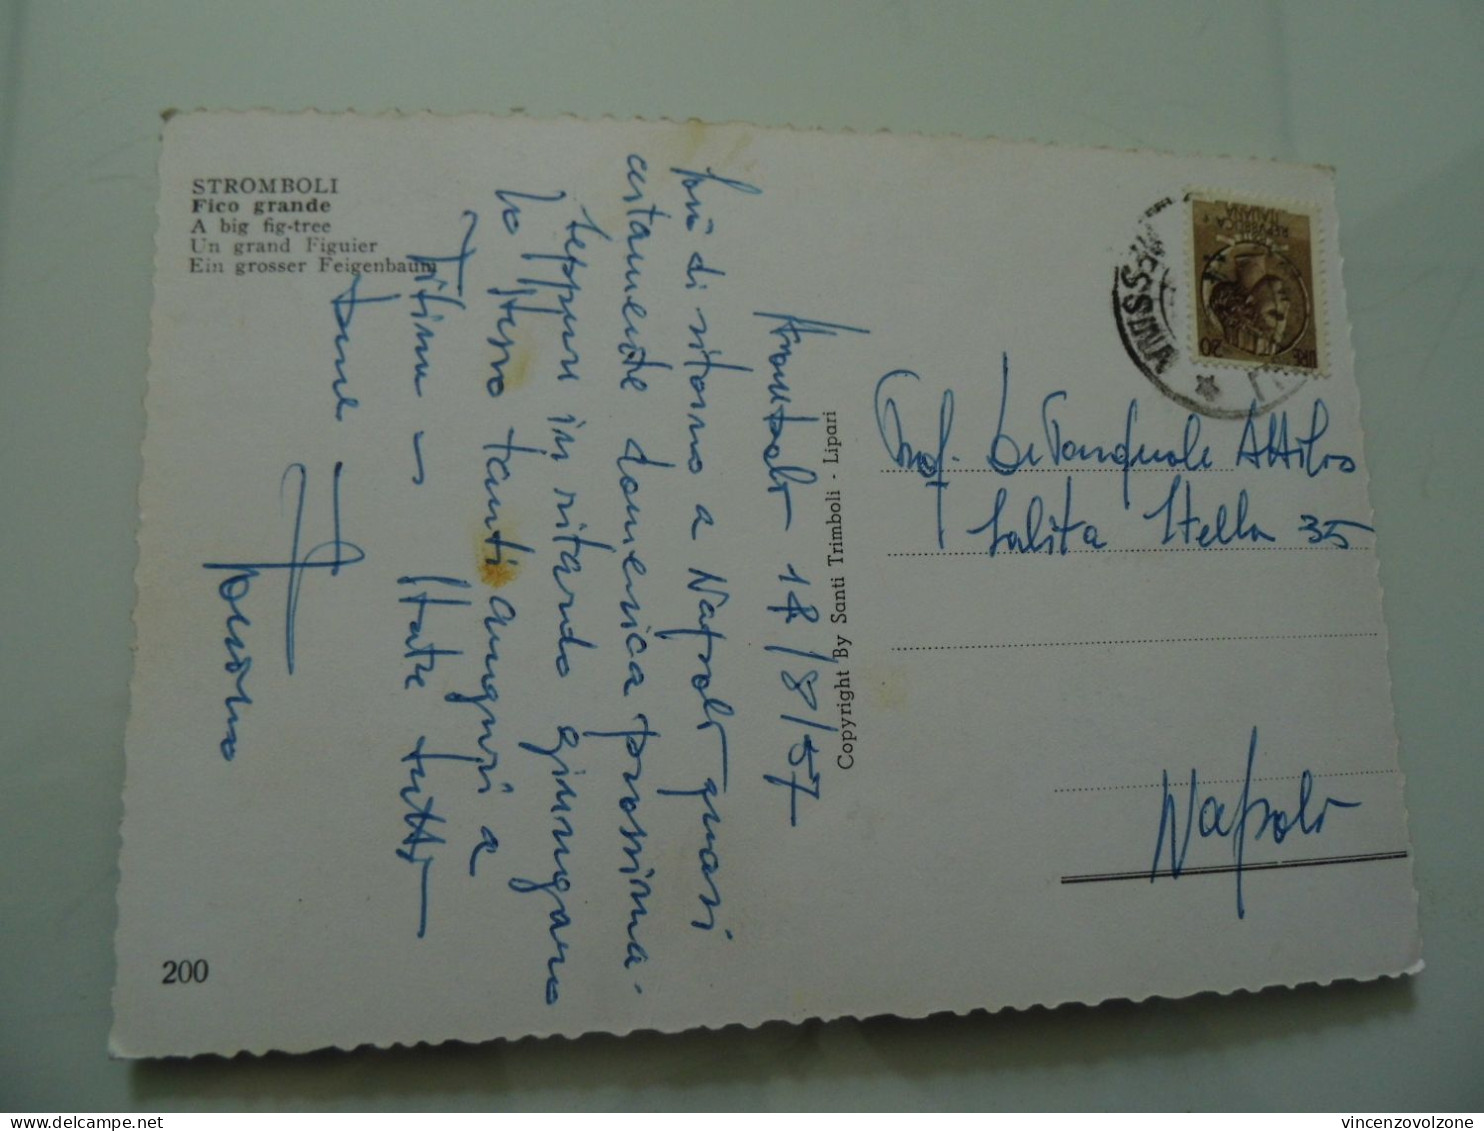 STROMBOLI
Fico grande
A big fig-tree
Un grand Figuier
Ein grosser Feigenbaum
Stromboli 18/8/57
Sarò di ritorno a Napoli quasi
certamente domenica prossima.
Seppur in ritardo giungano
lo stesso tanti auguri a
Titina
State tutti
bene
200
Copyright By Santi Trimboli - Lipari
REPUBBLICA
ITALIANA
LIRE 20
MESSINA
Prof. De Pasquale Attilio
Salita Stella 35
Napoli
vincenzovolzone